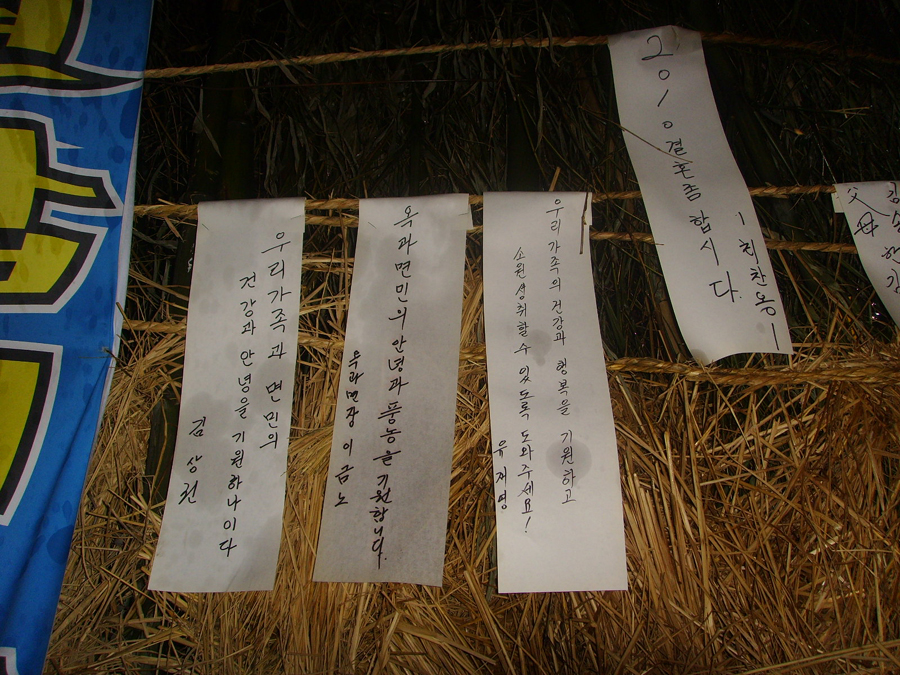 우리가족과 면민의
건강과 안녕을 기원하나이다
김상권
옥과면민의 안녕과 풍농을 기원합니다.
옥과면장 이금노
우리가족의 건강과 행복을 기원하고
소원성취할수 있도록 도와주세요!
유재영
2010 결혼좀 합시다.
- 최찬웅 -
父母